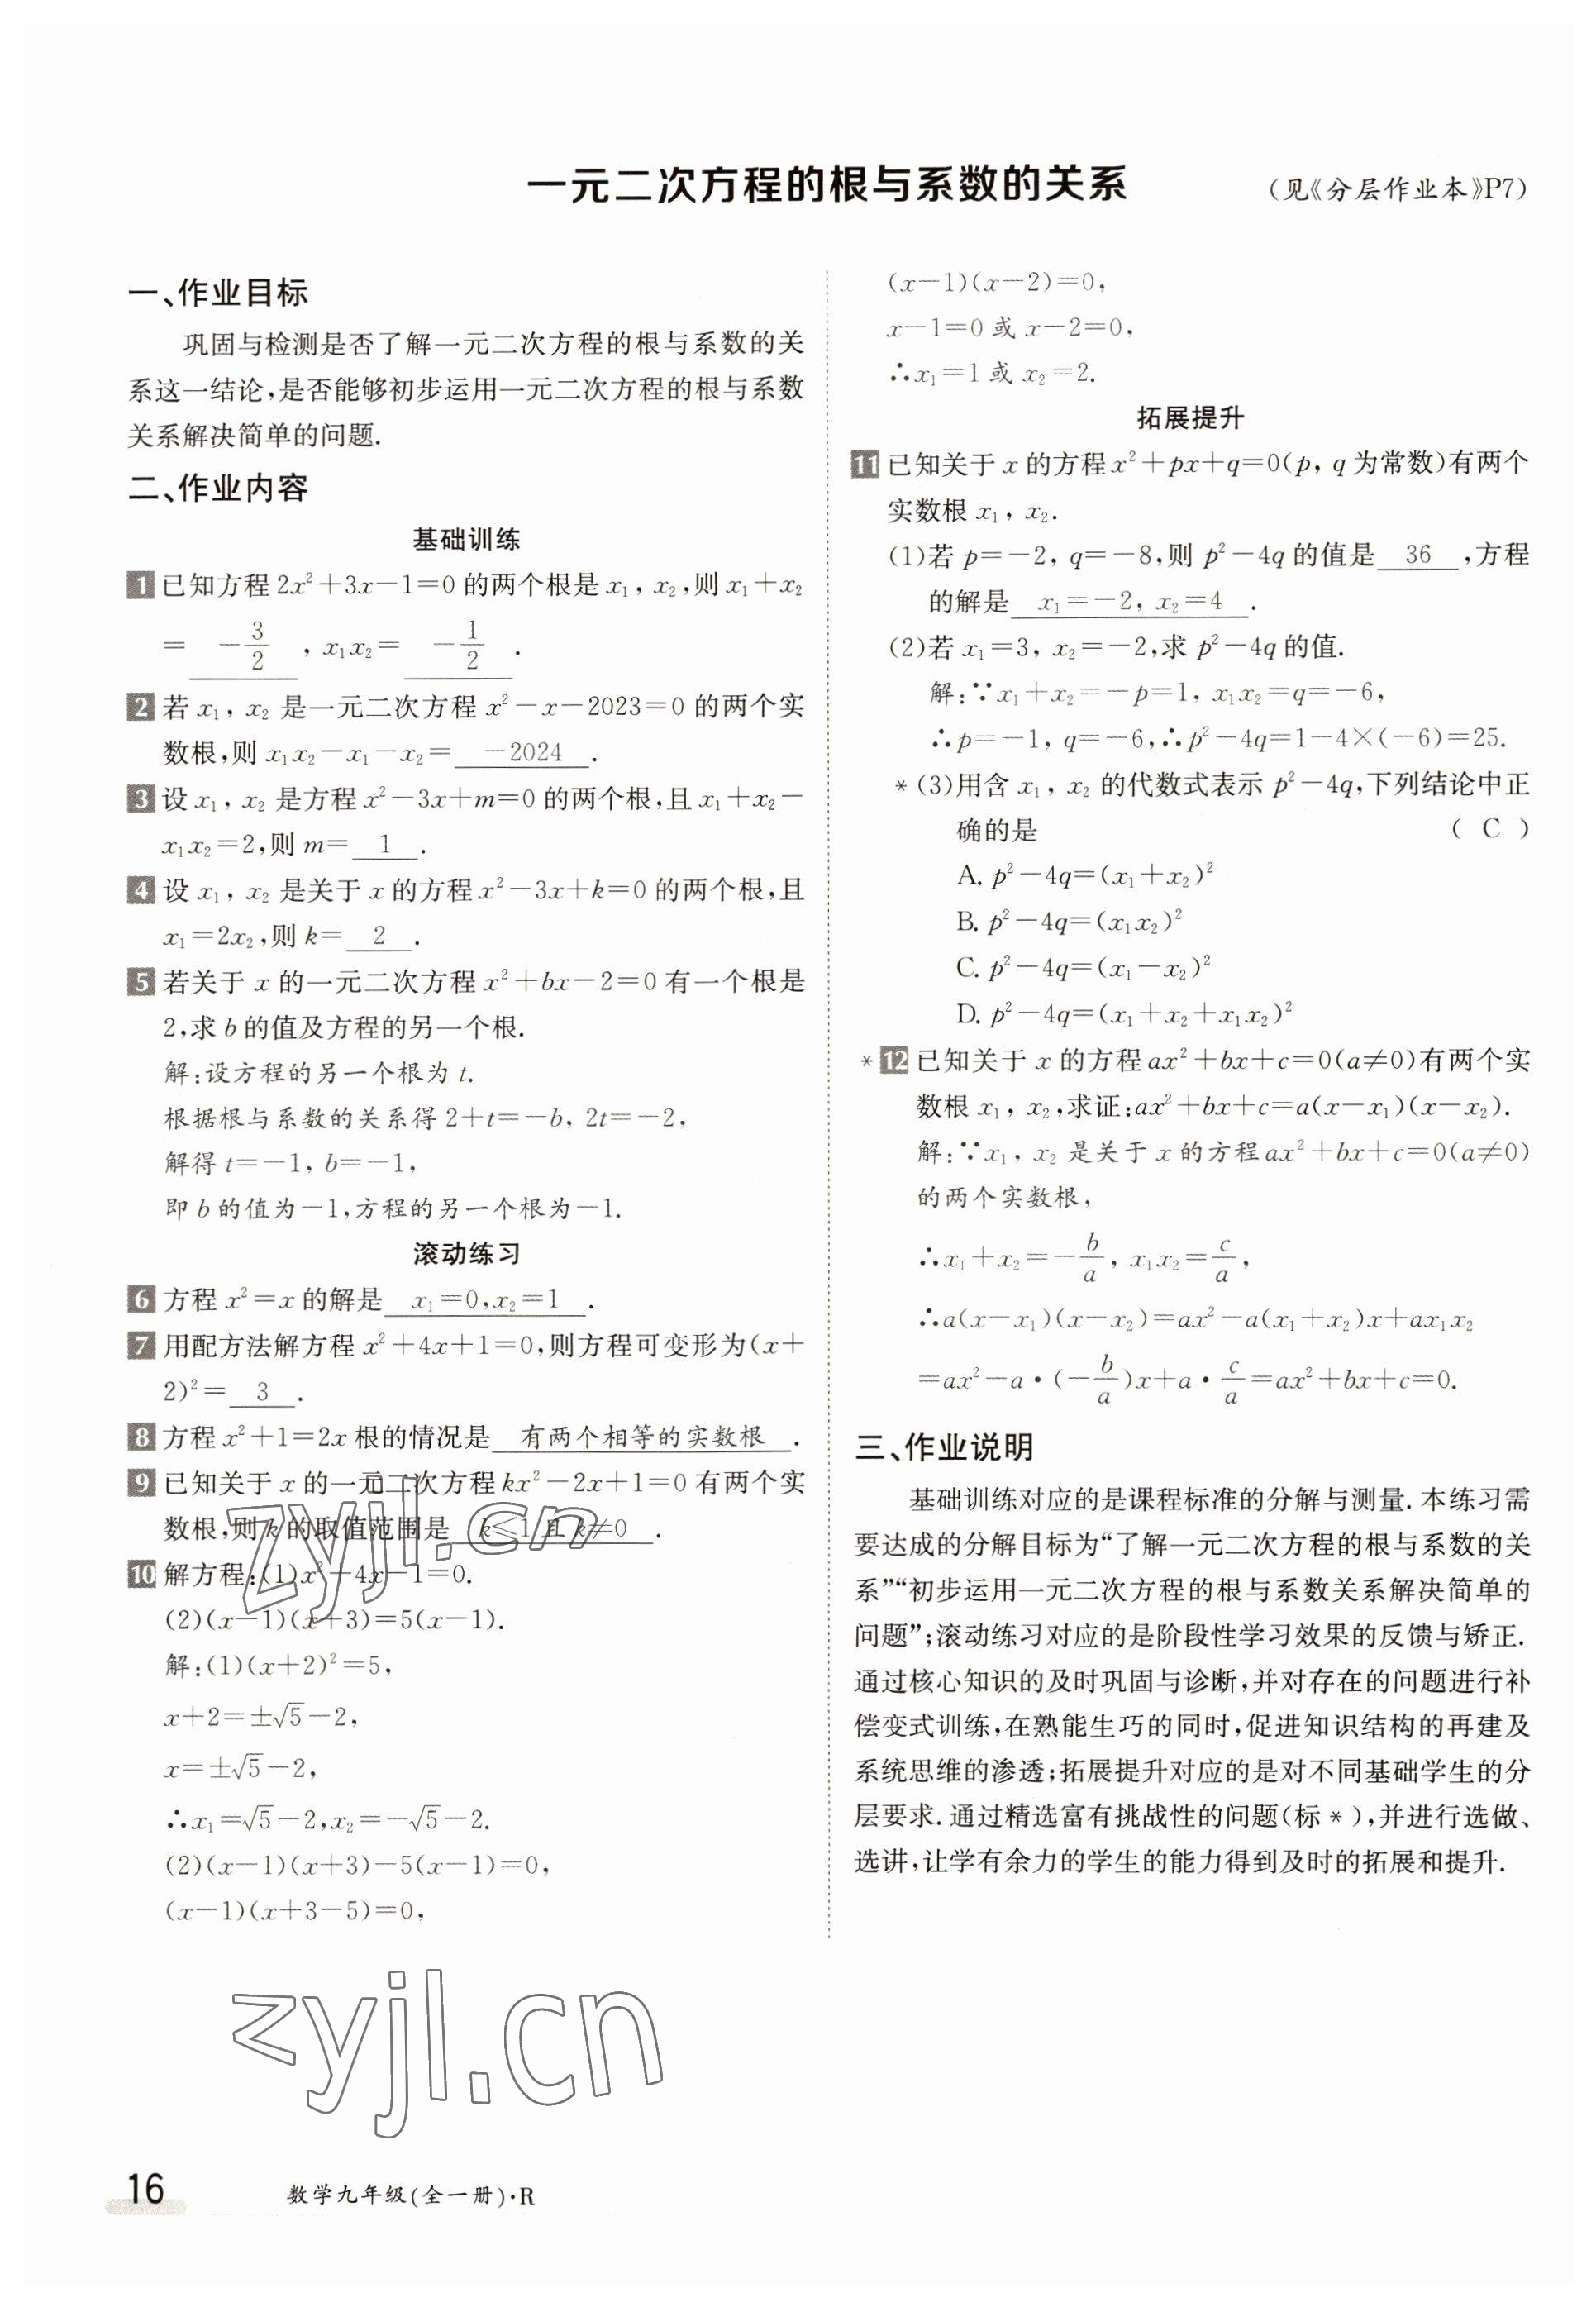 一元二次方程的根与系数的关系
(见《分层作业本》P7)
一、作业目标
巩固与检测是否了解一元二次方程的根与系数的关
系这一结论,是否能够初步运用一元二次方程的根与系数
关系解决简单的问题.
二、作业内容
基础训练
1 已知方程 2x²+3x-1=0 的两个根是 x₁, x₂,则 x₁+x₂
= -3/2 , x₁x₂= -1/2 .
2 若 x₁, x₂ 是一元二次方程 x²-x-2023=0 的两个实
数根,则 x₁x₂-x₁-x₂= -2024 .
3 设 x₁, x₂ 是方程 x²-3x+m=0 的两个根,且 x₁+x₂-
x₁x₂=2,则 m= 1 .
4 设 x₁, x₂ 是关于 x 的方程 x²-3x+k=0 的两个根,且
x₁=2x₂,则 k= 2 .
5 若关于 x 的一元二次方程 x²+bx-2=0 有一个根是
2,求 b 的值及方程的另一个根.
解:设方程的另一个根为 t.
根据根与系数的关系得 2+t=-b, 2t=-2,
解得 t=-1, b=-1,
即 b 的值为-1,方程的另一个根为-1.
滚动练习
6 方程 x²=x 的解是 x₁=0,x₂=1 .
7 用配方法解方程 x²+4x+1=0,则方程可变形为(x+
2)²= 3 .
8 方程 x²+1=2x 根的情况是 有两个相等的实数根 .
9 已知关于 x 的一元二次方程 kx²-2x+1=0 有两个实
数根,则 k 的取值范围是 k≤1 且 k≠0 .
10 解方程:(1)x²+4x-1=0.
(2)(x-1)(x+3)=5(x-1).
解:(1)(x+2)²=5,
x+2=±√5-2,
x=±√5-2,
∴x₁=√5-2,x₂=-√5-2.
(2)(x-1)(x+3)-5(x-1)=0,
(x-1)(x+3-5)=0,
(x-1)(x-2)=0,
x-1=0 或 x-2=0,
∴x₁=1 或 x₂=2.
拓展提升
11 已知关于 x 的方程 x²+px+q=0(p, q 为常数)有两个
实数根 x₁, x₂.
(1)若 p=-2, q=-8,则 p²-4q 的值是 36 ,方程
的解是 x₁=-2, x₂=4 .
(2)若 x₁=3, x₂=-2,求 p²-4q 的值.
解:∵x₁+x₂=-p=1, x₁x₂=q=-6,
∴p=-1, q=-6,∴p²-4q=1-4×(-6)=25.
*(3)用含 x₁, x₂ 的代数式表示 p²-4q,下列结论中正
确的是 ( C )
A. p²-4q=(x₁+x₂)²
B. p²-4q=(x₁x₂)²
C. p²-4q=(x₁-x₂)²
D. p²-4q=(x₁+x₂+x₁x₂)²
*12 已知关于 x 的方程 ax²+bx+c=0(a≠0)有两个实
数根 x₁, x₂,求证:ax²+bx+c=a(x-x₁)(x-x₂).
解:∵x₁, x₂ 是关于 x 的方程 ax²+bx+c=0(a≠0)
的两个实数根,
∴x₁+x₂=-b/a, x₁x₂=c/a,
∴a(x-x₁)(x-x₂)=ax²-a(x₁+x₂)x+ax₁x₂
=ax²-a·(-b/a)x+a·c/a=ax²+bx+c=0.
三、作业说明
基础训练对应的是课程标准的分解与测量.本练习需
要达成的分解目标为“了解一元二次方程的根与系数的关
系”“初步运用一元二次方程的根与系数关系解决简单的
问题”;滚动练习对应的是阶段性学习效果的反馈与矫正.
通过核心知识的及时巩固与诊断,并对存在的问题进行补
偿变式训练,在熟能生巧的同时,促进知识结构的再建及
系统思维的渗透;拓展提升对应的是对不同基础学生的分
层要求.通过精选富有挑战性的问题(标 *),并进行选做、
选讲,让学有余力的学生的能力得到及时的拓展和提升.
zyjl.cn
zyjl.cn
16
数学九年级(全一册)·R